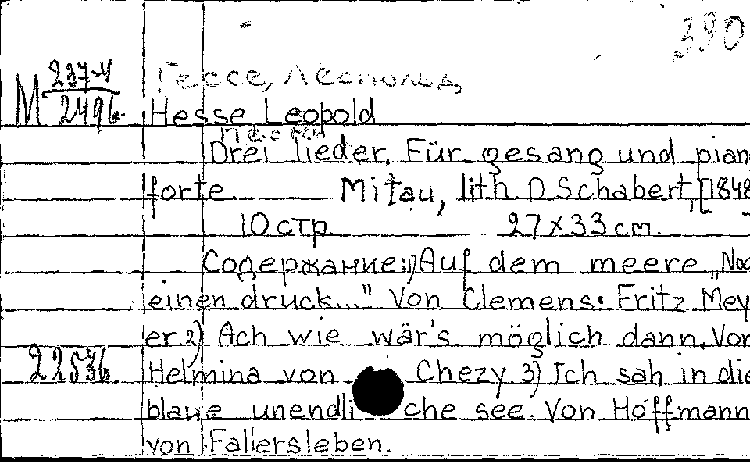 390
М 237-V/2496. Гессе, Леопольд,
Hesse Leopold
Drei lieder. Für gesang und pian
forte Mitau, lith D. Schabert, [1848
10 стр 27x33 см.
Содержание: 1) Auf dem meere „Noc
einen druck..." Von Clemens: Fritz Mey
er 2) Ach wie wär's möglich dann. Von
22536. Helmina von Chezy 3) Ich sah in die
blaue unendli che see. Von Hoffmann
von Fallersleben.